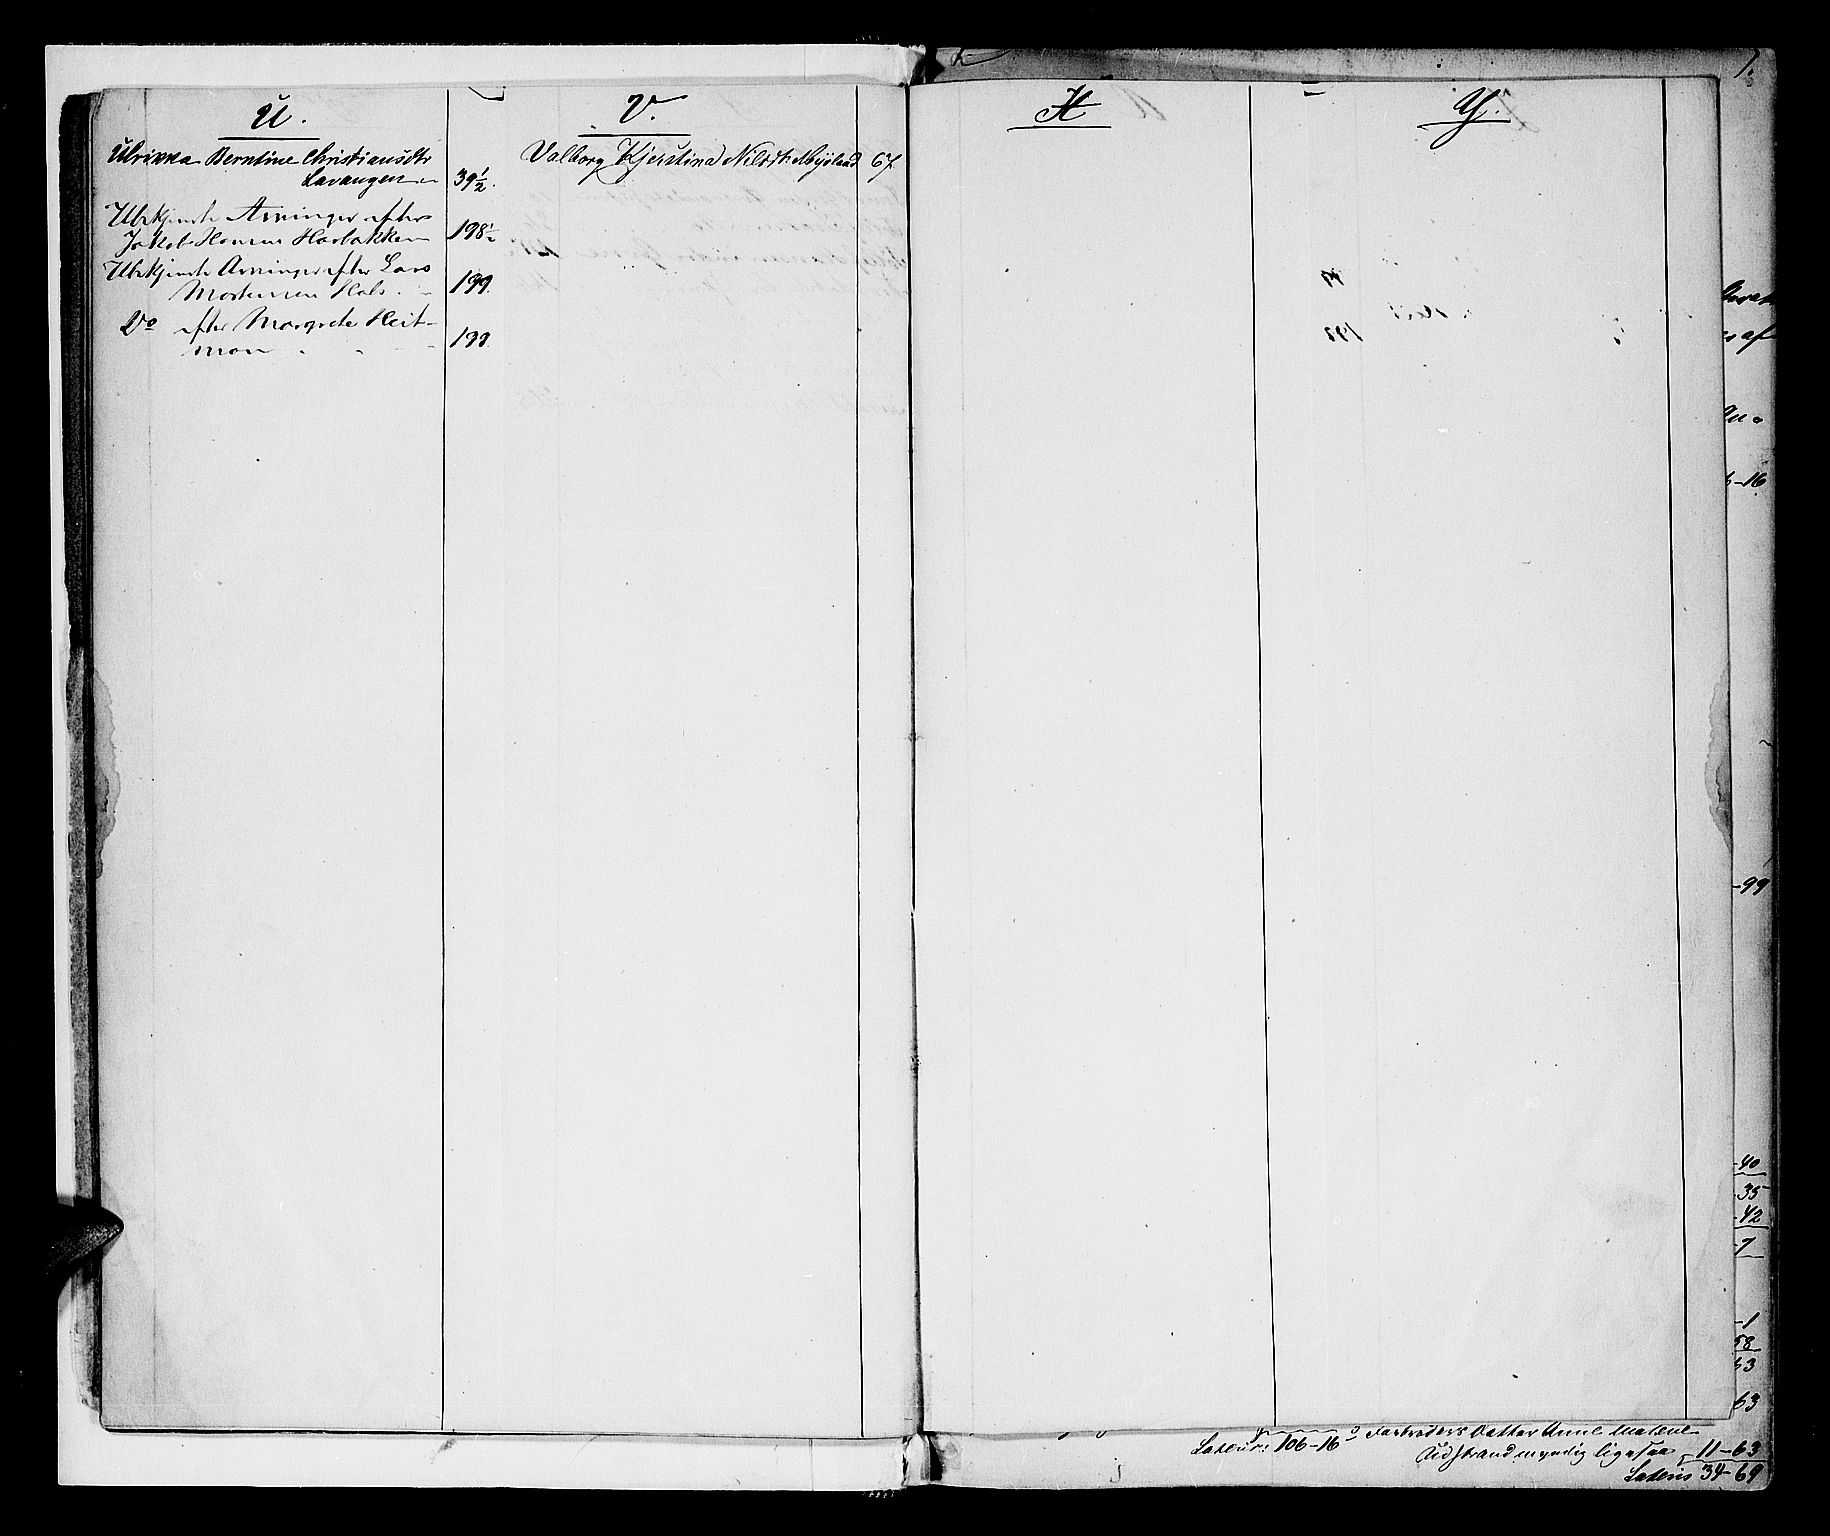 U.
Ulrikka Berntine Christiansdtr
Lavangen 39½.
Ubekjendte Arvinger efter
Jakob Hansen Havbakken 198½
Ubekjendte Arvinger efter Lars
Mortensen Hals. 199.
Do efter Margrete Heit-
man 199.
V.
Valborg Kjerstina Nilsdtr. Myrland 67
X
Y.
1.
af
-16
-99
-40
-35
-42
-7
-1
58
63
63
Lateris 106-16
Farbroders Datter Anne Martene
Udstrand myndig ligesaa 11-63
Lateris 34-69